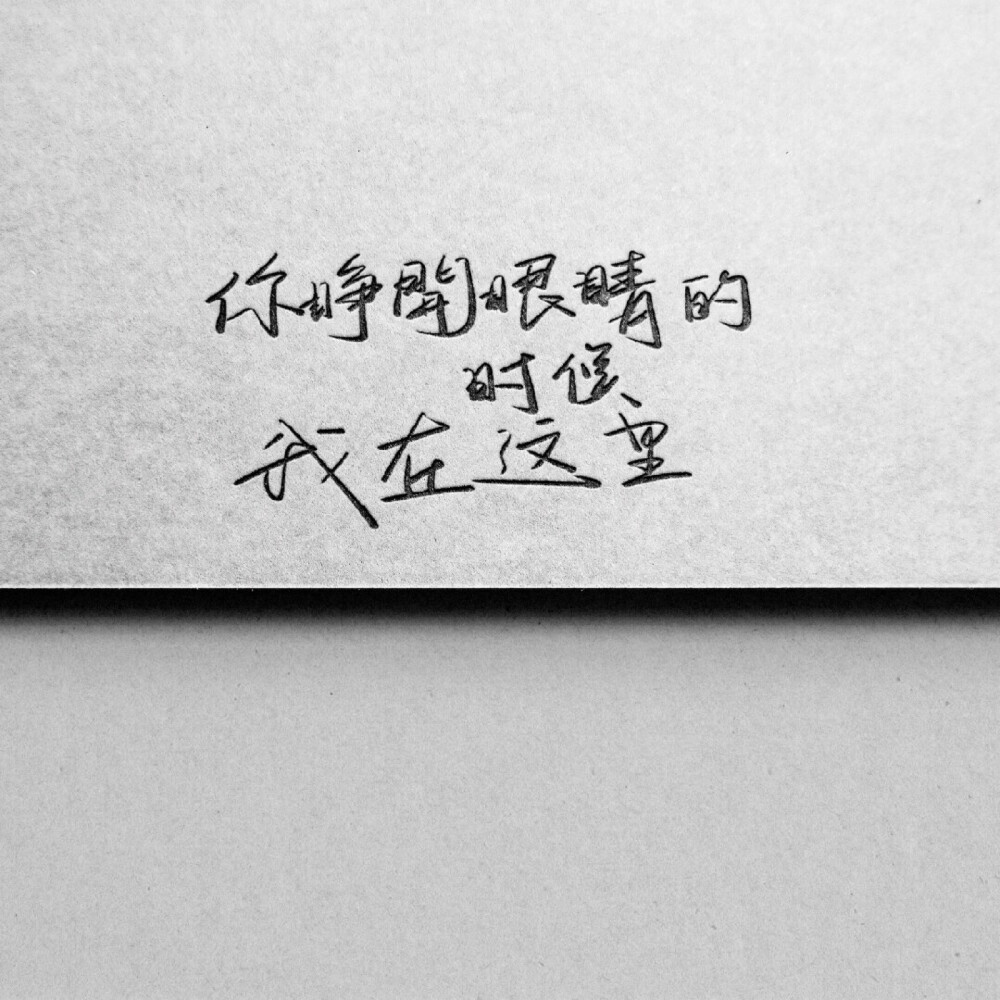 你睁開眼睛的
时候
我在这里